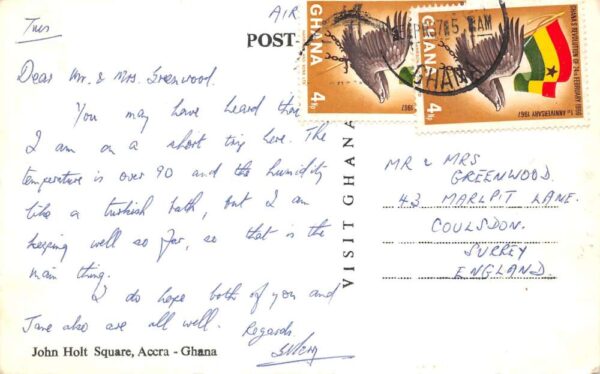 Tues
AIR
POST-
GHANA
4½
1967
GHANA
4½
GHANA'S REVOLUTION OF 24th FEBRUARY 1966
1st ANNIVERSARY 1967
GHANA
Dear Mr. & Mrs. Greenwood.
You may have heard that
I am on a short trip here. The
temperature is over 90 and the humidity
like a turkish bath, but I am
keeping well so far, so that is the
main thing.
I do hope both of you and
Jane also are all well. Regards
John Holt Square, Accra - Ghana
VISIT GHANA
MR & MRS
GREENWOOD.
43 MARLPIT LANE.
COULSDON.
SURREY
ENGLAND.